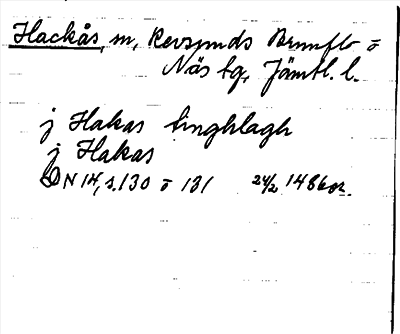 Hackås, sn, Revsunds Brunflo o
Näs tg, Jämtl. l.
j Hakas tinghlagh
j Hakas
DN 14, s. 130 o 131 24/2 1486 or.